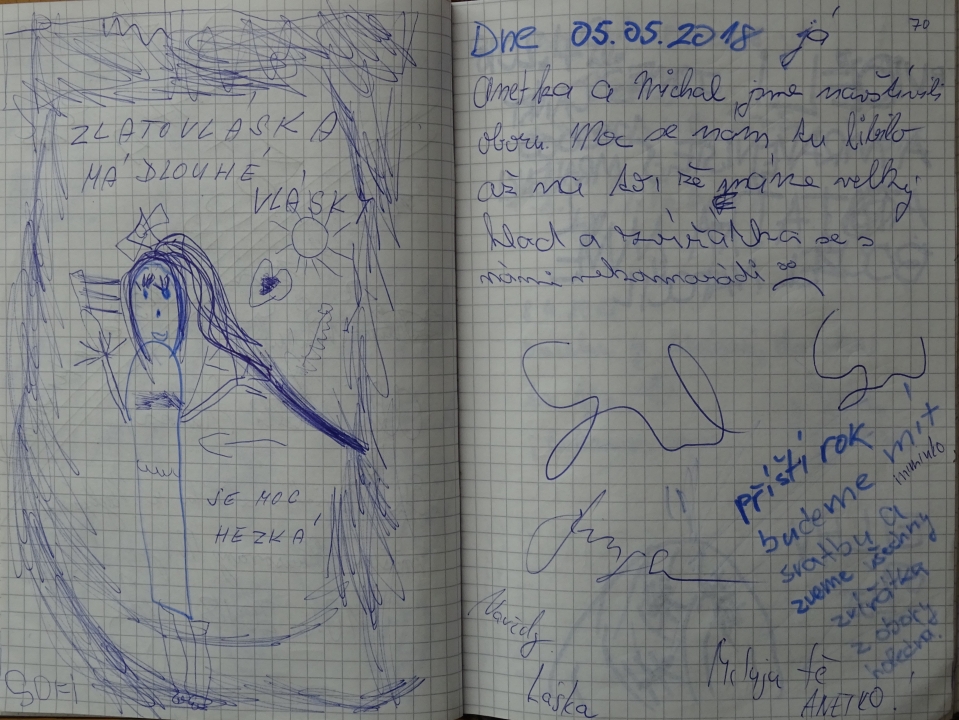 ZLATOVLÁSKA
MÁ DLOUHÉ
VLÁSKY
JE MOC
HEZKÁ
SOFI
70
Dne 05.05.2018 já
Anetka a Michal jsme navštívili
oboru. Moc se nám tu líbilo
až na to, že máme velký
hlad a zvířátka se s
námi nekamarádí
příští rok
budeme mít
miminko,
svatbu a
zveme všechny
zvířátka
z obory
Navždy
Láska
Miluju tě
ANETKO!